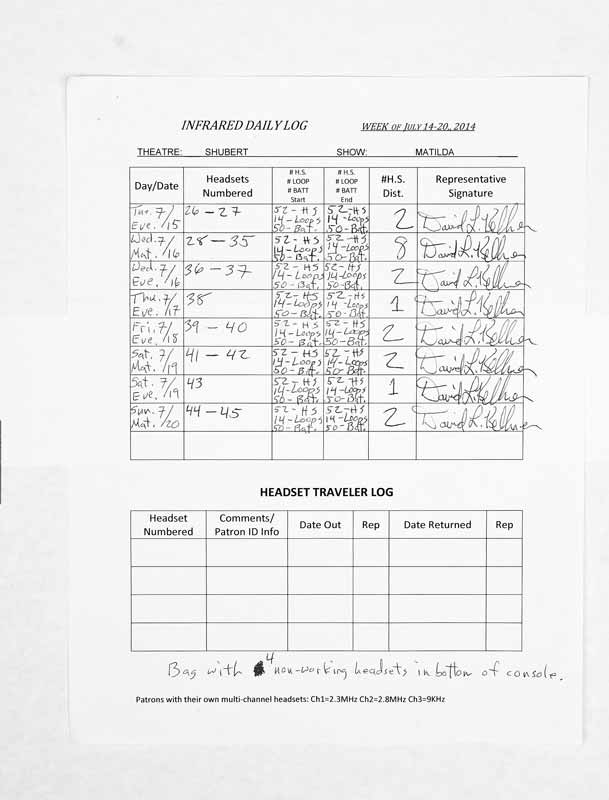 INFRARED DAILY LOG WEEK OF JULY 14-20,, 2014
THEATRE: SHUBERT SHOW: MATILDA
Day/Date Headsets Numbered # H.S. # LOOP # BATT Start # H.S. # LOOP # BATT End #H.S. Dist. Representative Signature
Tue. 7/15 Eve. 26 – 27 52 - HS 14 - Loops 50 - Bat. 52 - HS 14 - Loops 50 - Bat. 2 David L. Kellner
Wed. 7/16 Mat. 28 – 35 52 - HS 14 - Loops 50 - Bat. 52 - HS 14 - Loops 50 - Bat. 8 David L. Kellner
Wed. 7/16 Eve. 36 – 37 52 - HS 14 - Loops 50 - Bat. 52 - HS 14 - Loops 50 - Bat. 2 David L. Kellner
Thu. 7/17 Eve. 38 52 - HS 14 - Loops 50 - Bat. 52 - HS 14 - Loops 50 - Bat. 1 David L. Kellner
Fri. 7/18 Eve. 39 – 40 52 - HS 14 - Loops 50 - Bat. 52 - HS 14 - Loops 50 - Bat. 2 David L. Kellner
Sat. 7/19 Mat. 41 – 42 52 - HS 14 - Loops 50 - Bat. 52 - HS 14 - Loops 50 - Bat. 2 David L. Kellner
Sat. 7/19 Eve. 43 52 - HS 14 - Loops 50 - Bat. 52 - HS 14 - Loops 50 - Bat. 1 David L. Kellner
Sun. 7/20 Mat. 44 – 45 52 - HS 14 - Loops 50 - Bat. 52 - HS 14 - Loops 50 - Bat. 2 David L. Kellner
HEADSET TRAVELER LOG
Headset Numbered Comments/ Patron ID Info Date Out Rep Date Returned Rep
Bag with 4 non-working headsets in bottom of console.
Patrons with their own multi-channel headsets: Ch1=2.3MHz Ch2=2.8MHz Ch3=9KHz